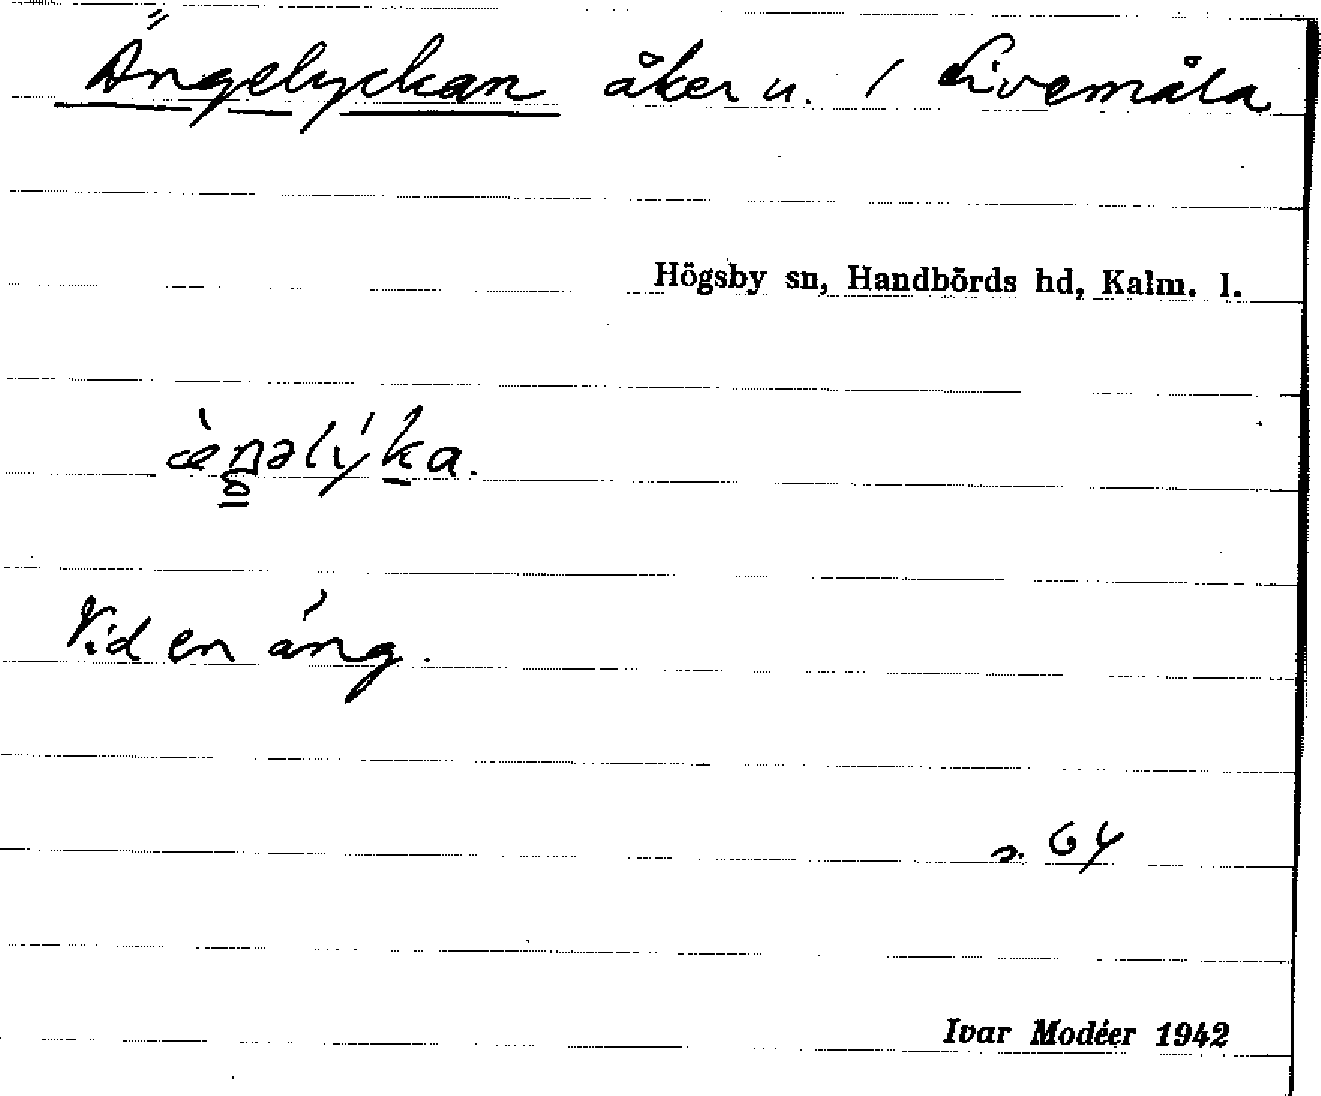 Ängelyckan åker u. 1 Livemåla
Högsby sn, Handbörds hd, Kalm. l.
æ̀ŋəlýka.
Vid en äng.
s. 64
Ivar Modéer 1942